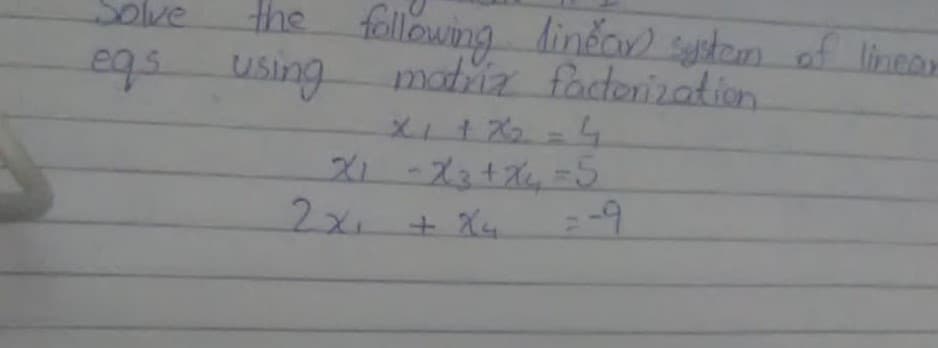 Solve the following linear system of linear
eqs using matrix factorization
x₁ + x₂ = 4
x₁ - x₃ + x₄ = 5
2x₁ + x₄ = -9